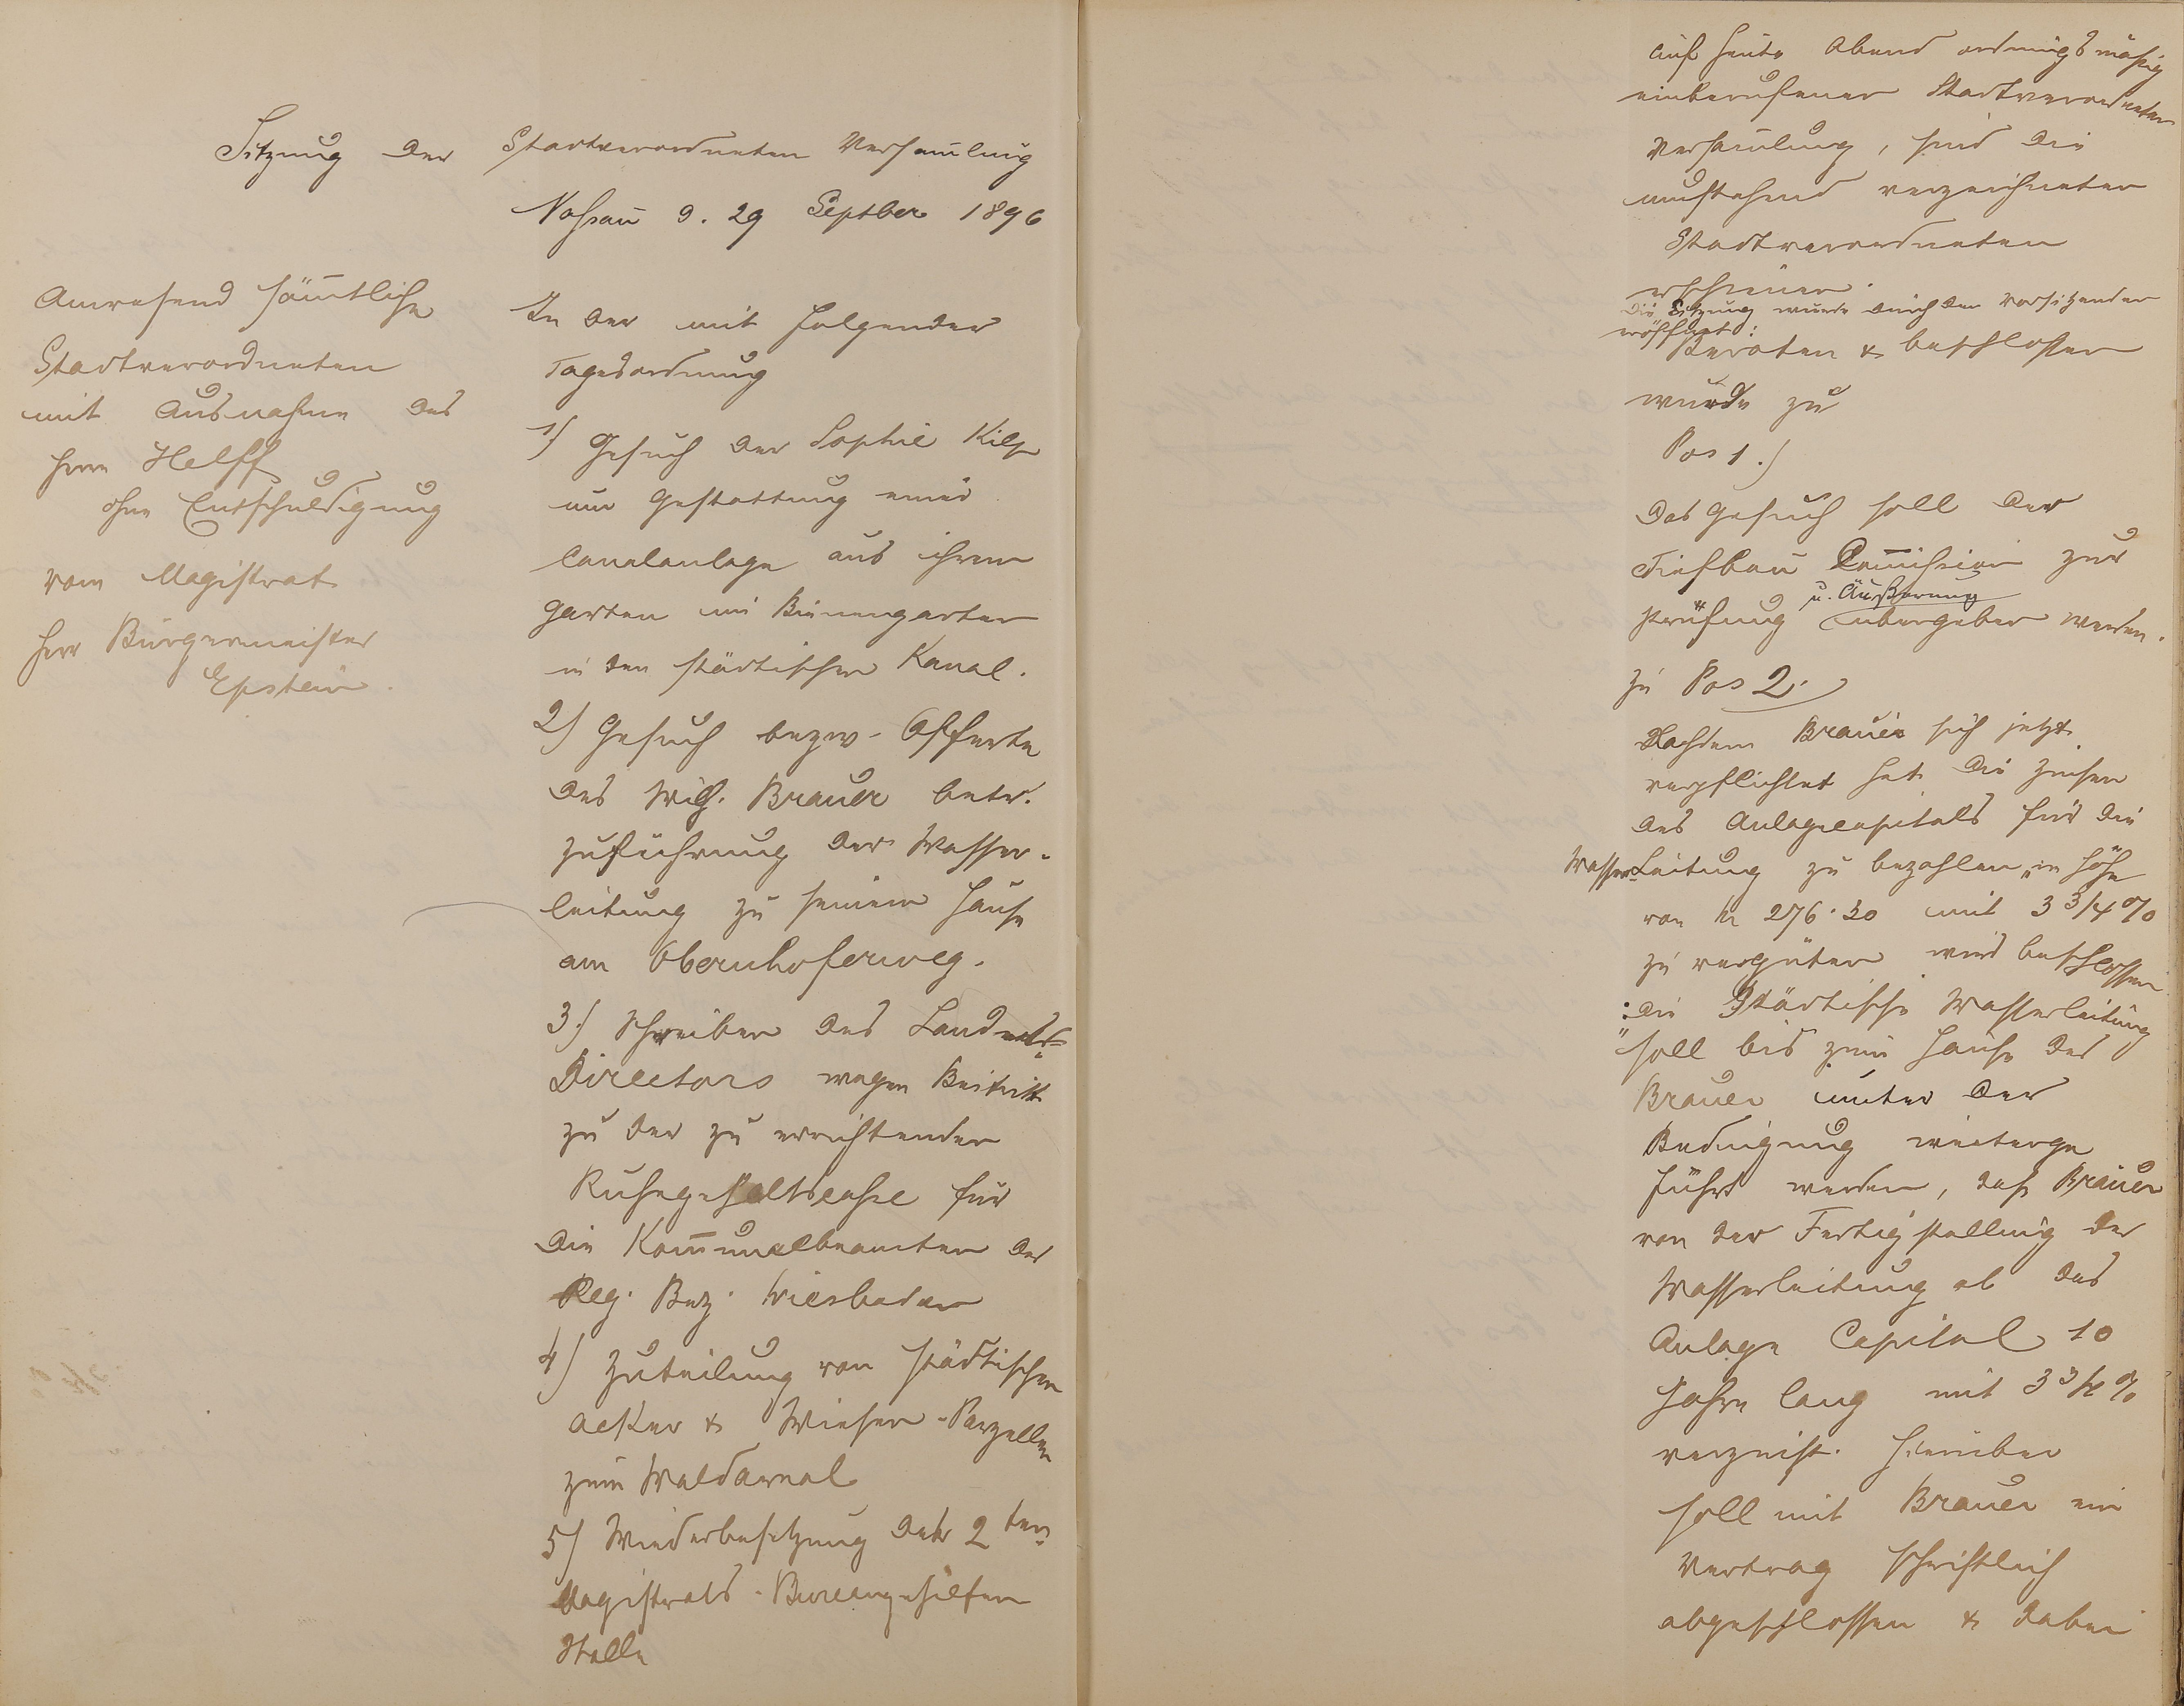 Sitzung der Stadtverordneten Versam̅lung
Nassau d. 29 Septber 1896
Anwesend säm̅tliche
Stadtverordneten
mit Ausnahme des
Herrn Helff
ohne Entschuldigung
vom Magistrat
Herr Bürgermeister
Epstein.
In der mit folgender
Tagesordnung
1) Gesuch der Sophie Kilp
um Gestattung einer
Canalanlage aus ihrem
Garten im Bienengarten
in den städtischen Kanal.
2) Gesuch bezw. Offerte
des Wilh. Brauer betr.
Zuführung der Wasser-
leitung zu seinem Hause
am Obernhoferweg.
3.) Schreiben des Landes-
Directors wegen Beitritt
zu der zu errichtenden
Ruhegehaltscasse für
die Kom̅unalbeamten des
Reg. Bez. Wiesbaden
4) Zuteilung von städtischen
Acker & Wiesen-Parzellen
zum Waldareal
5) Wiederbesetzung der 2ten
Magistrats-Bureaugehilfen
Stelle
auf heute Abend ordnungsmäßig
einberufenen Stadtverordneten
Versam̅lung, sind die
umstehend verzeichneten
Stadtverordneten
erschienen.
Die Sitzung wurde durch den Vorsitzenden
eröffnet:
Beraten & beschlossen
wurde zu
Pos 1.)
Das Gesuch soll der
Tiefbau Com̅ission zur
u. Äußerung
Prüfung übergeben werden.
zu Pos 2.
Nachdem Brauer sich jetzt
verpflichtet hat die Zinsen
des Anlagecapitals für die
Wasserleitung zu bezahlen, in Höhe
von M 276.30 mit 3 3/4 %
zu vergüten wird beschlossen
: die Städtische Wasserleitung
"soll bis zum Hause des
Brauer unter der
Bedingung weiterge
führt werden, daß Brauer
von der Fertigstellung der
Wasserleitung ab das
Anlage Capital 10
Jahre lang mit 3 3/4 %
verzinst. Hierüber
soll mit Brauer ein
Vertrag schriftlich
abgeschlossen & dabei